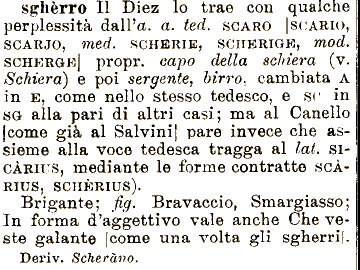 sghèrro Il Diez lo trae con qualche
perplessità dall'a. a. ted. SCARO |SCARIO,
SCARJO, med. SCHERIE, SCHERIGE, mod.
SCHERGE| propr. capo della schiera (v.
Schiera) e poi sergente, birro, cambiata A
in E, come nello stesso tedesco, e SC in
SG alla pari di altri casi; ma al Canello
|come già al Salvini| pare invece che as-
sieme alla voce tedesca tragga al lat. SI-
CÀRIUS, mediante le forme contratte SCÀ-
RIUS, SCHÈRIUS).
Brigante; fig. Bravaccio, Smargiasso;
In forma d'aggettivo vale anche Che ve-
ste galante |come una volta gli sgherri|.
Deriv. Scheràno.